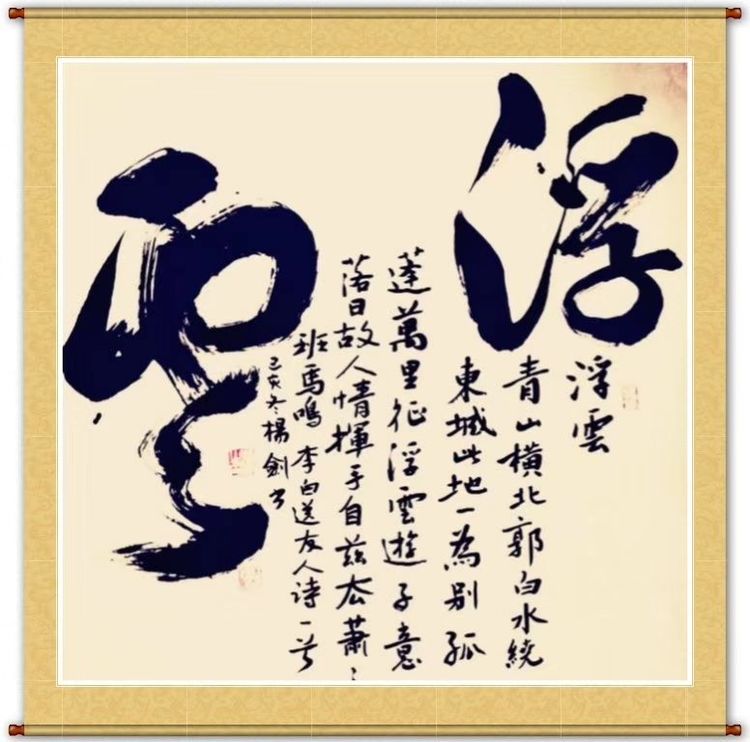 浮雲
浮雲
青山橫北郭白水繞
東城此地一為別孤
蓬萬里征浮雲遊子意
落日故人情揮手自茲去蕭〻
班馬鳴 李白送友人诗一首
己亥冬楊劍书